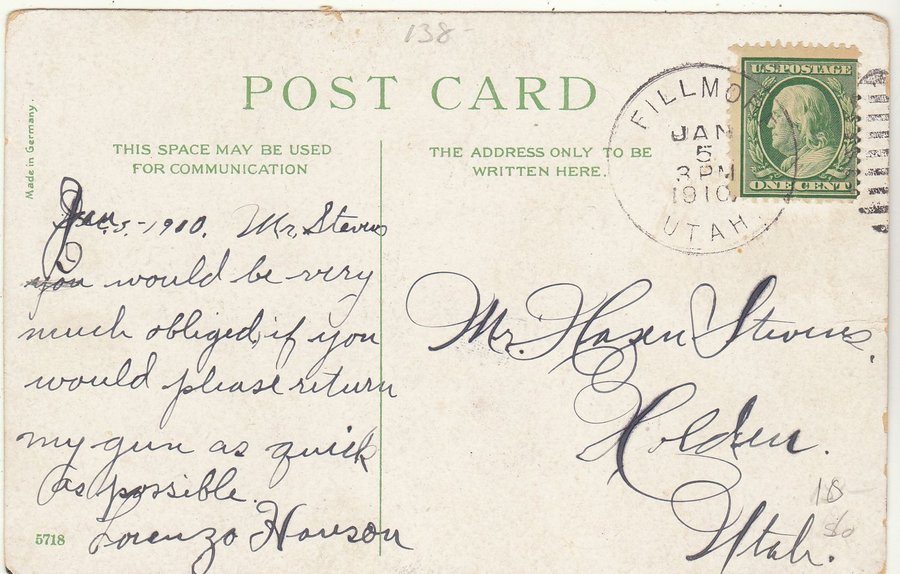 138-
POST CARD
Made in Germany.
THIS SPACE MAY BE USED
FOR COMMUNICATION
THE ADDRESS ONLY TO BE
WRITTEN HERE.
FILLMO
JAN
5
3 PM
1910
UTAH
U.S. POSTAGE
ONE CENT
Jan. 5.-1910. Mr. Stevens
you would be very
much obliged, if you
would please return
my gun as quick
as possible.
Lorenzo Hanson
5718
Mr. Hasen Stevens,
Holden.
Utah.
18-